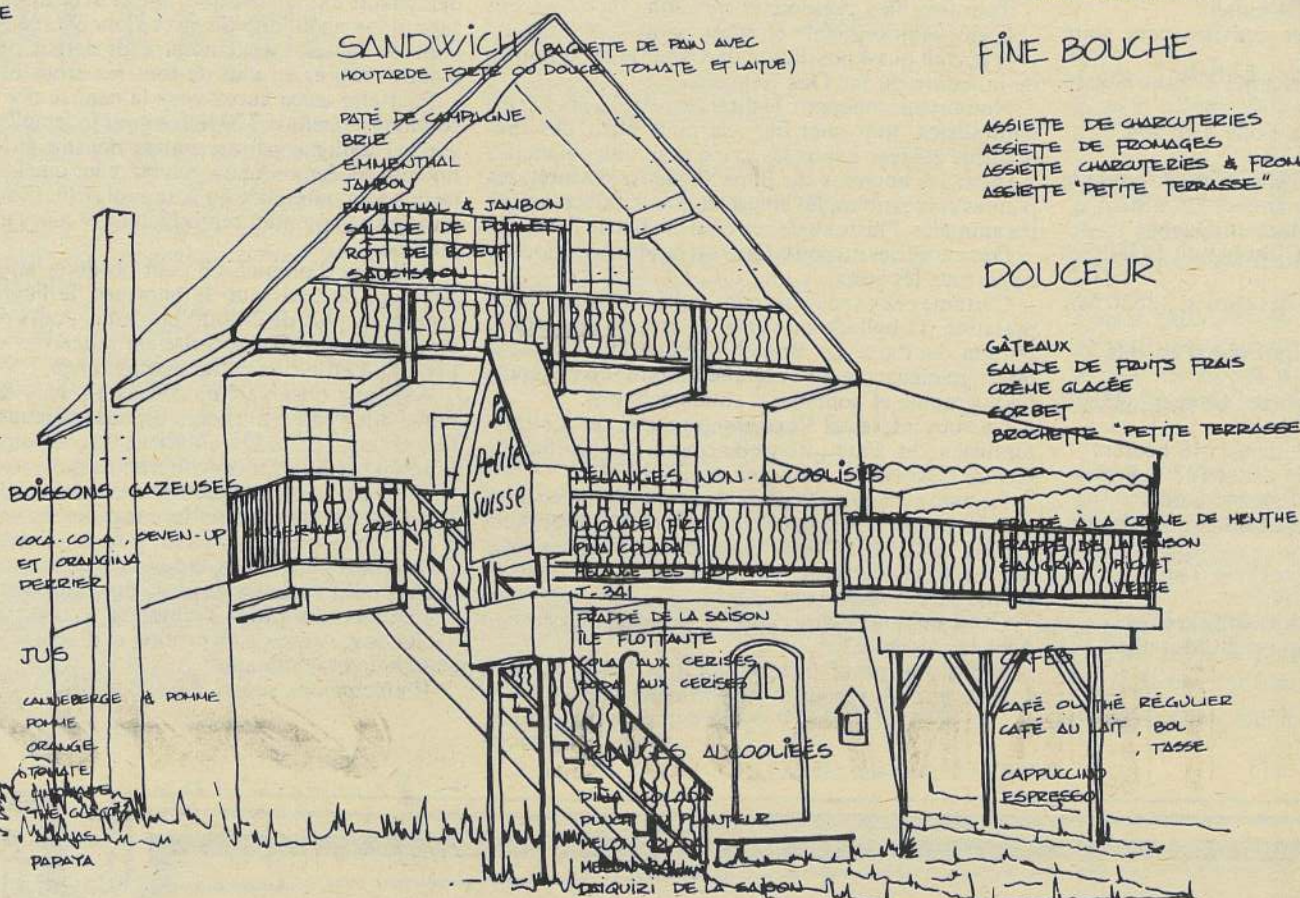 E
SANDWICH (BAGUETTE DE PAIN AVEC
MOUTARDE FORTE OU DOUCE, TOMATE ET LAITUE)
PATÉ DE CAMPAGNE
BRIE
EMMENTHAL
JAMBON
EMMENTHAL & JAMBON
SALADE DE POULET
RÔT DE BOEUF
SAUCISSON
FINE BOUCHE
ASSIETTE DE CHARCUTERIES
ASSIETTE DE FROMAGES
ASSIETTE CHARCUTERIES & FROM
ASSIETTE "PETITE TERRASSE"
DOUCEUR
GÂTEAUX
SALADE DE FRUITS FRAIS
CRÈME GLACÉE
SORBET
BROCHETTE "PETITE TERRASSE
La
Petite
Suisse
BOISSONS GAZEUSES
COCA-COLA, SEVEN-UP, GINGERALE CREAM SODA
ET ORANGINA
PERRIER
JUS
CANNEBERGE & POMME
POMME
ORANGE
TOMATE
LIMONADE
THÉ GLACÉ
ANANAS
PAPAYA
MÉLANGES NON-ALCOOLISÉS
LIMONADE FIZZ
PINA COLADA
MÉLANGE DES TROPIQUES
T-341
FRAPPÉ DE LA SAISON
ÎLE FLOTTANTE
COLA AUX CERISES
SODA AUX CERISES
MÉLANGES ALCOOLISÉS
PINA COLADA
PUNCH DU PLANTEUR
MELON COLADA
MELON BALL
DAIQUIRI DE LA SAISON
FRAPPÉ À LA CRÈME DE MENTHE
FRAPPÉ DE LA SAISON
SANGRIA, PICHET
VERRE
CAFÉS
CAFÉ OU THÉ RÉGULIER
CAFÉ AU LAIT, BOL
, TASSE
CAPPUCCINO
ESPRESSO